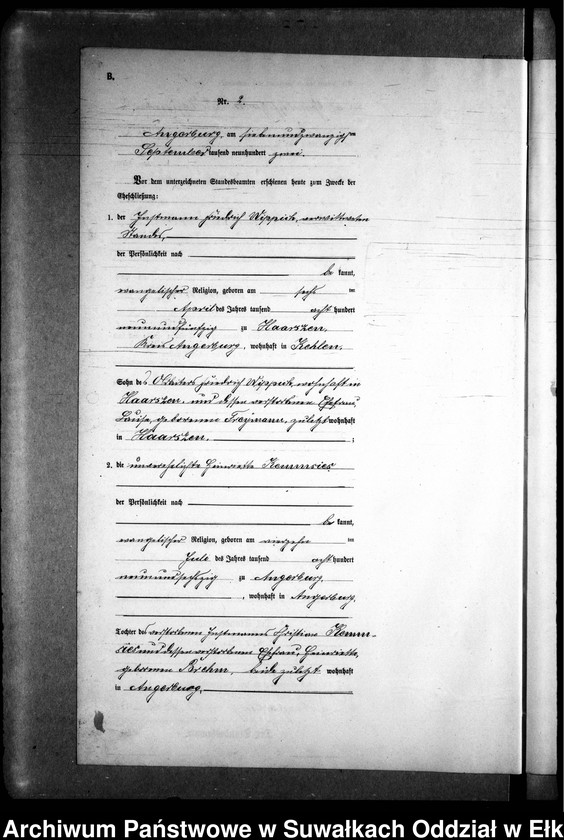 B.
Nr. 2.
Angerburg, am siebenundzwanzigsten
September tausend neunhundert zwei.
Vor dem unterzeichneten Standesbeamten erschienen heute zum Zwecke der
Eheschließung:
1. der Instmann Friedrich Wippich, verwittweten
Standes,
der Persönlichkeit nach
be kannt,
evangelischer Religion, geboren am sechs ten
April des Jahres tausend acht hundert
neunundfünfzig zu Haarszen,
Kreis Angerburg, wohnhaft in Kehlen,
Sohn des Friedrich Wippich, wohnhaft in
Haarszen, und dessen verstorbenen Ehefrau,
Louise, geborenen Freymann, zuletzt wohnhaft
in Haarszen. ;
2. die unverehelichte Henriette Kemmsies
der Persönlichkeit nach
be kannt,
evangelischer Religion, geboren am vierzehn ten
Juli des Jahres tausend acht hundert
neunundsechzig zu Angerburg,
, wohnhaft in Angerburg,
Tochter des verstorbenen Instmanns Christian Kemm-
sies und dessen verstorbenen Ehefrau, Henriette,
geborenen Brehm, beide zuletzt wohnhaft
in Angerburg,
Archiwum Państwowe w Suwałkach Oddział w Ełk